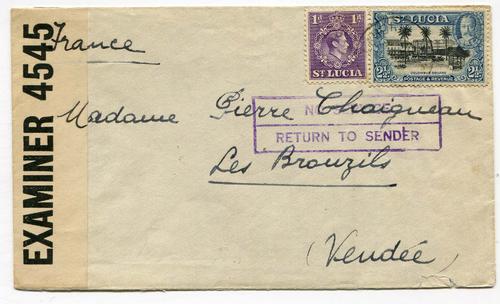 EXAMINER 4545
France
1d 1d
ST LUCIA
ST LUCIA
2½d 2½d
COLUMBUS SQUARE
POSTAGE & REVENUE
Madame Pierre Chaigneau
RETURN TO SENDER
Les Brouzils
(Vendée)